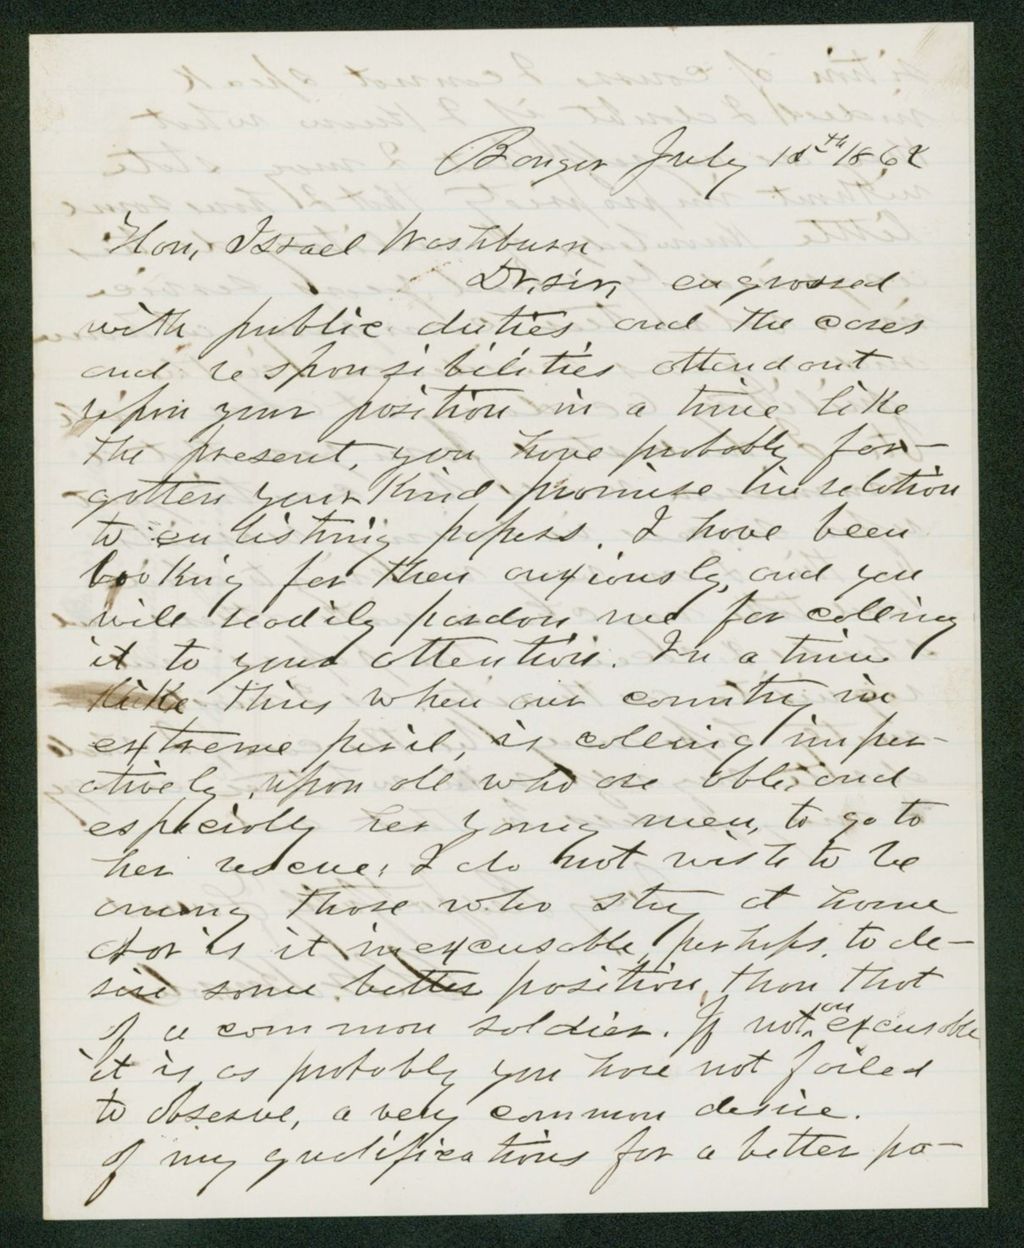 Bangor July 11th 1862
Hon, Israel Washburn
Dr, sir, engrossed
with public duties and the cares
and responsibilities attendant
upon your position in a time like
the present, you have probably for-
gotten your kind promise in relation
to enlisting papers. I have been
looking for them anxiously, and you
will readily pardon me for calling
it to your attention. In a time
like this when our country in
extreme peril, is calling imper-
atively, upon all who are able, and
especially her young men, to go to
her rescue, I do not wish to be
among those who stay at home
Nor is it inexcusable, perhaps, to de-
sire some better position, than that
of a common soldier. If not an excusable
it is as probably you have not failed
to observe, a very common desire.
Of my qualifications for a better po-